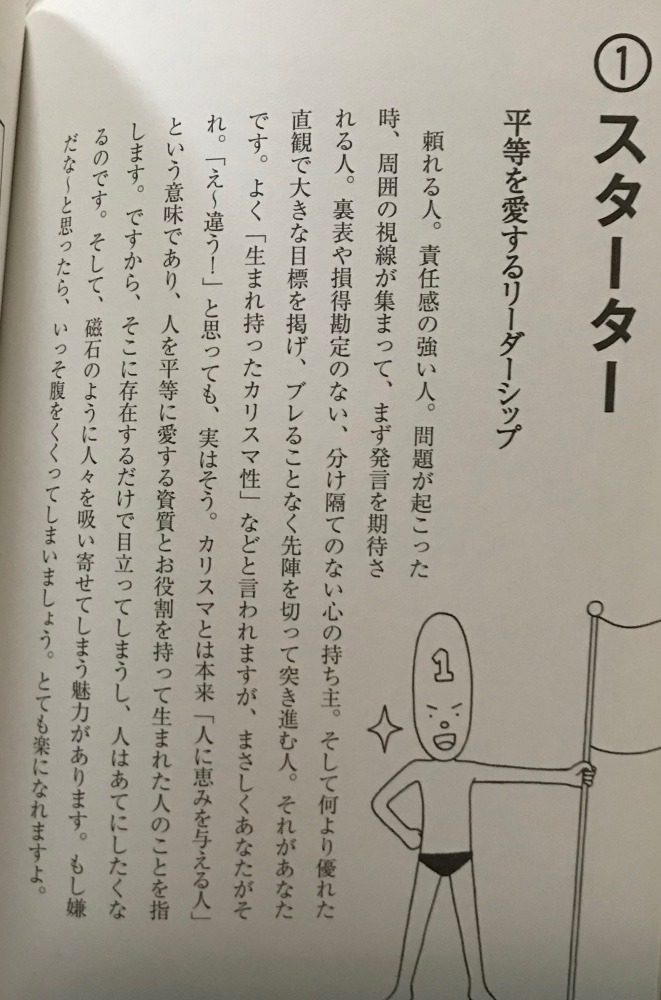 ① スターター
平等を愛するリーダーシップ
頼れる人。責任感の強い人。問題が起こった
時、周囲の視線が集まって、まず発言を期待さ
れる人。裏表や損得勘定のない、分け隔てのない心の持ち主。そして何より優れた
直観で大きな目標を掲げ、ブレることなく先陣を切って突き進む人。それがあなた
です。よく「生まれ持ったカリスマ性」などと言われますが、まさしくあなたがそ
れ。「え〜違う!」と思っても、実はそう。カリスマとは本来「人に恵みを与える人」
という意味であり、人を平等に愛する資質とお役割を持って生まれた人のことを指
します。ですから、そこに存在するだけで目立ってしまうし、人はあてにしたくな
るのです。そして、磁石のように人々を吸い寄せてしまう魅力があります。もし嫌
だな〜と思ったら、いっそ腹をくくってしまいましょう。とても楽になれますよ。
1